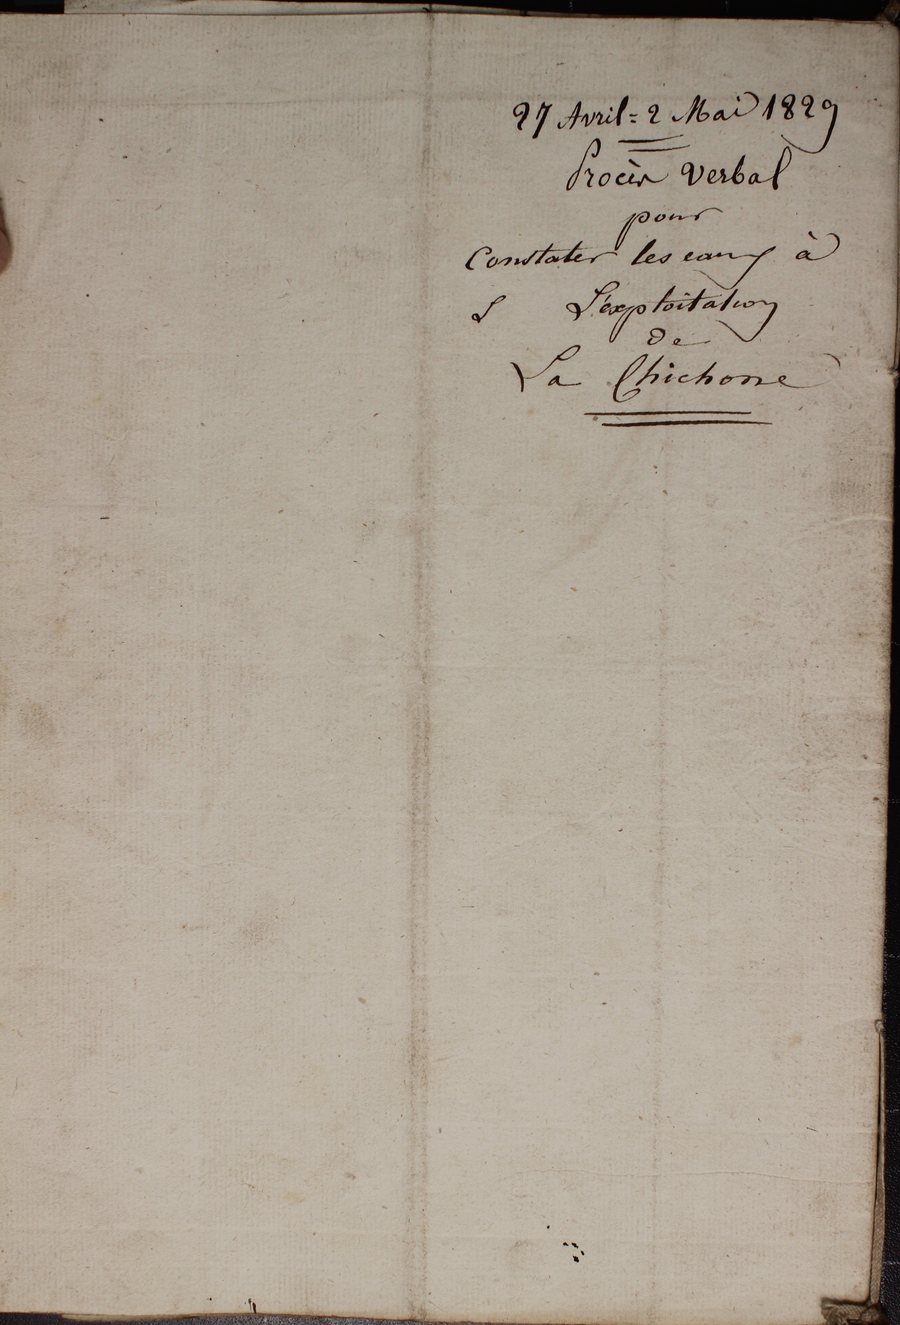 27 Avril = 2 Mai 1829
Procès Verbal
pour
Constater les eaux à
L'exploitation
de
La Chichorre